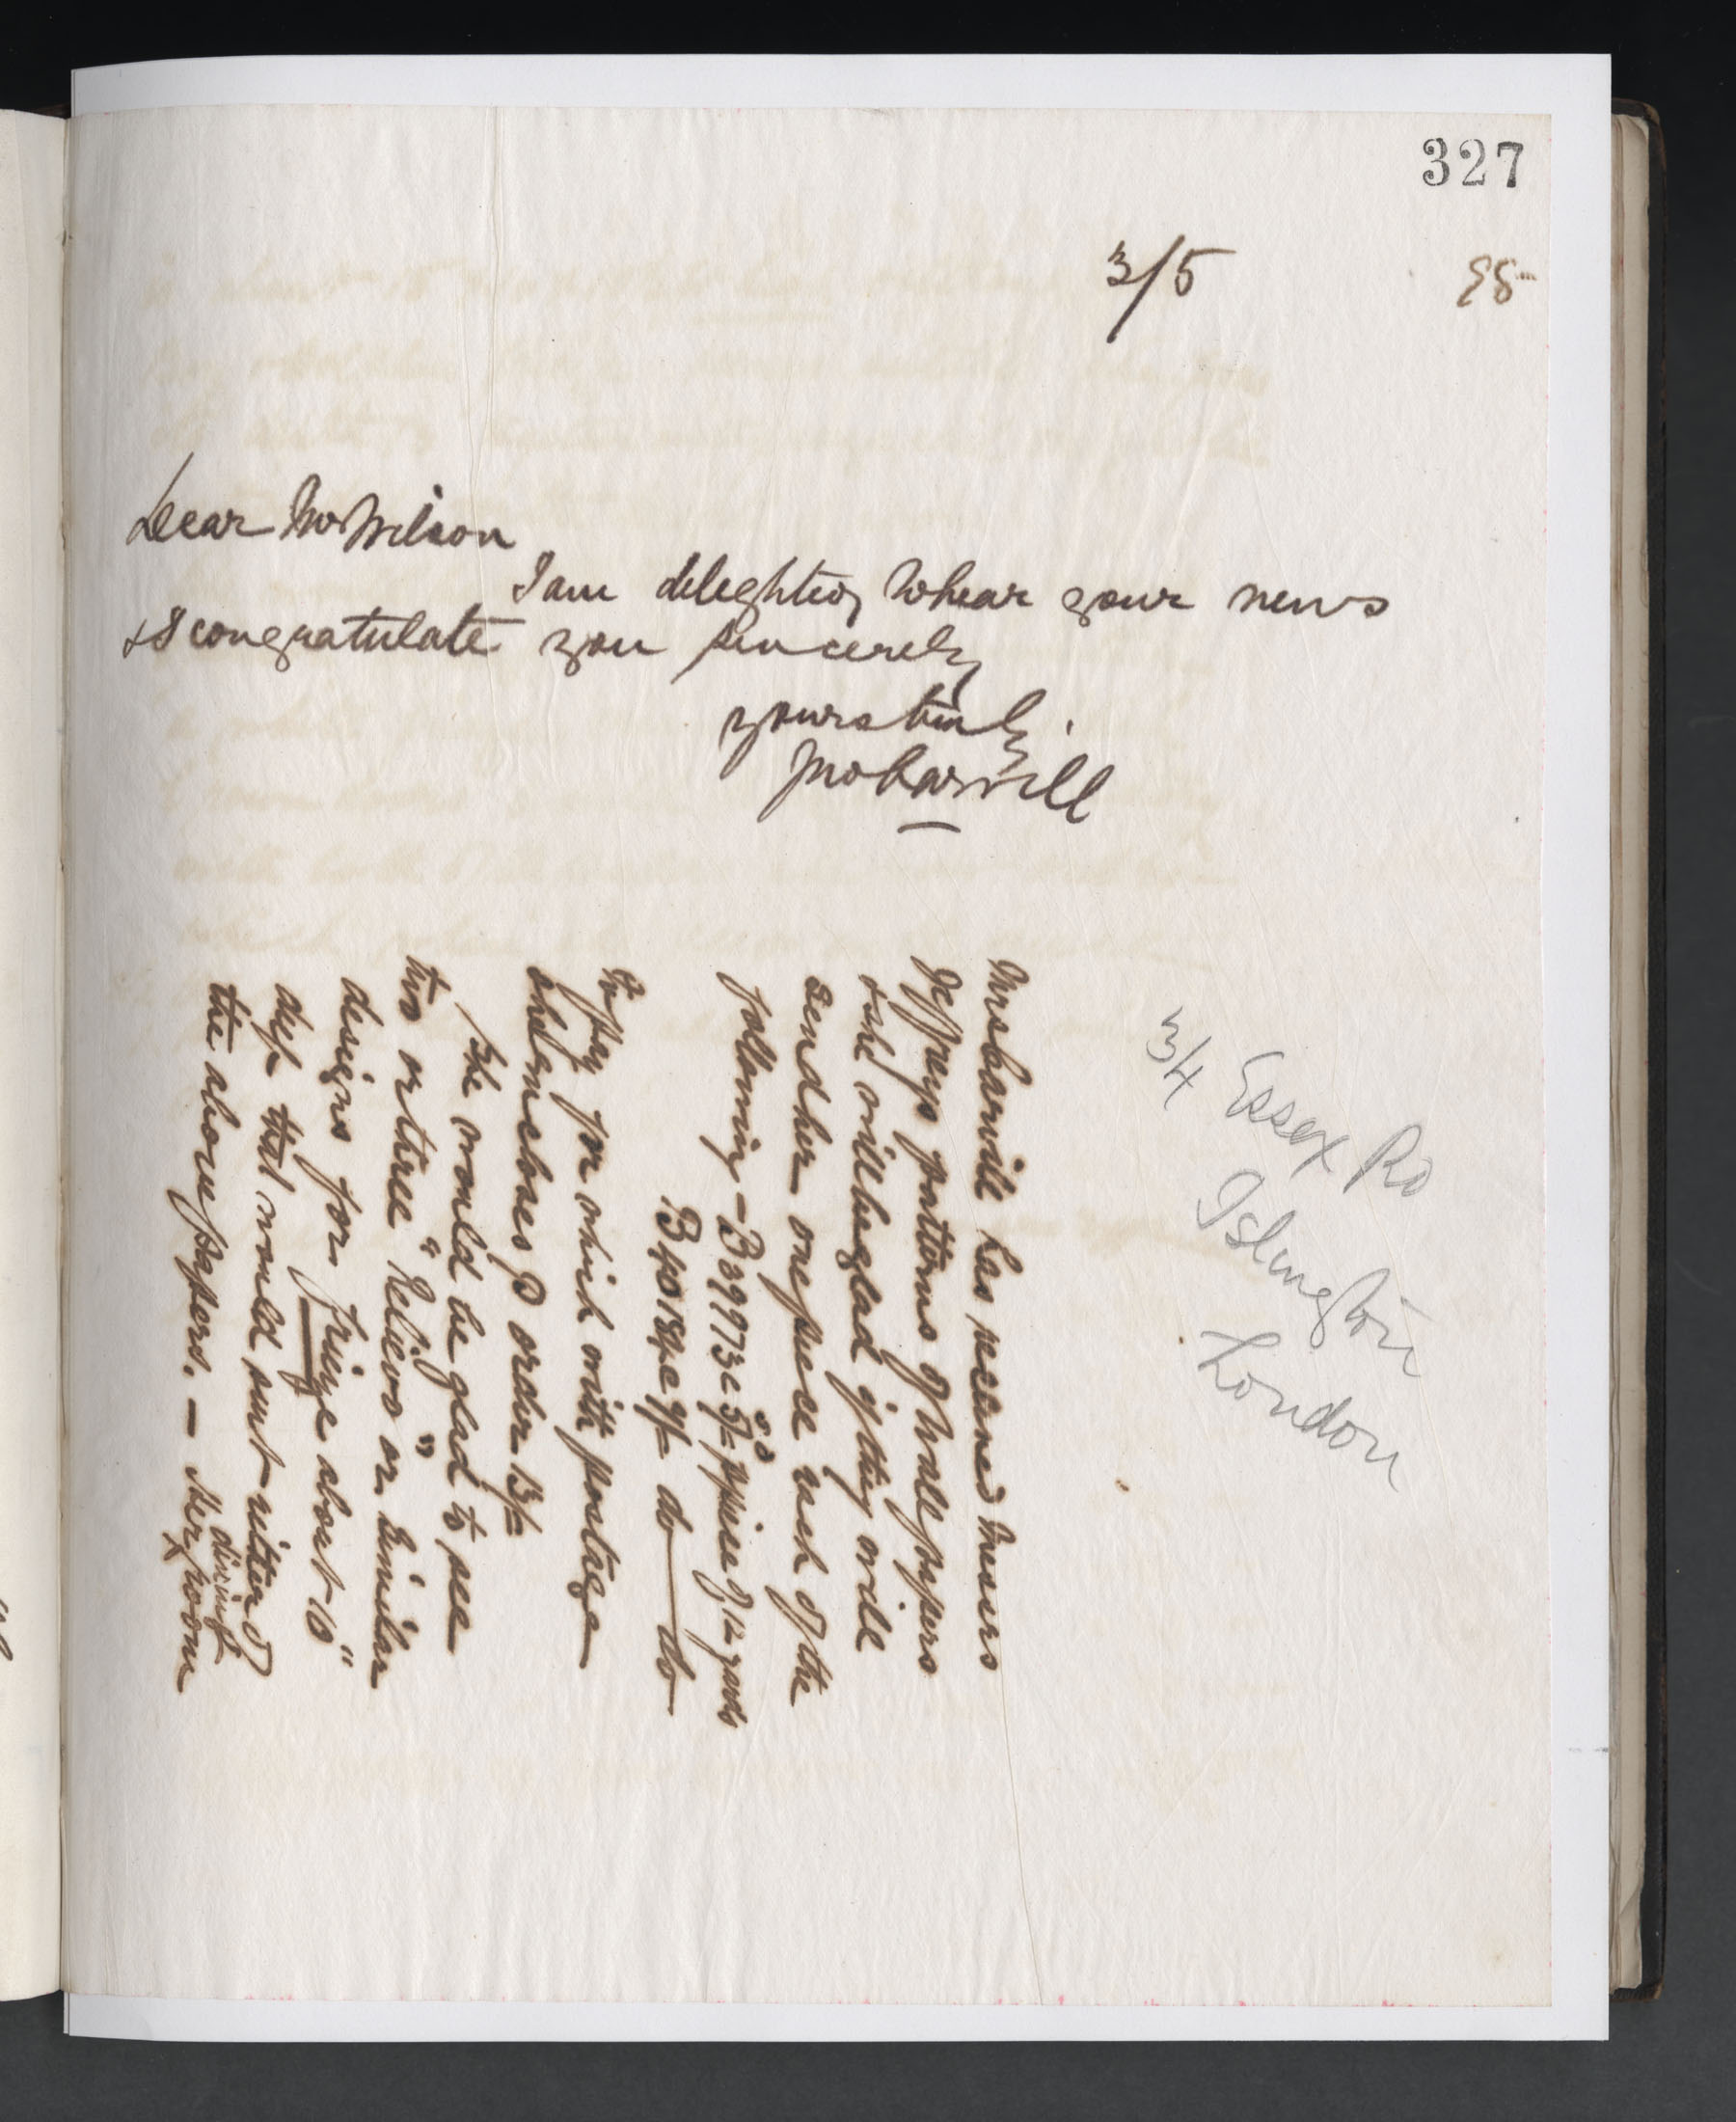 327
3/5 98
Dear Mr Wilson
I am delighted to hear your news
& I congratulate you sincerely
yours truly
Jno Carvill
Mrs Carvill has received Messrs
Jeffreys patterns of Wall papers
& she will be glad if they will
send her one piece each of the
following – B 39973c 3/- p piece of 12 yards
B 40184c 9/- do do
To pay for which with postage
she encloses P order 13/-
She would be glad to see
two or three "Relievo" or similar
designs for frieze about 18"
deep that would suit either of
the above papers. – dining
Room
34 Essex Rd
Islington
London